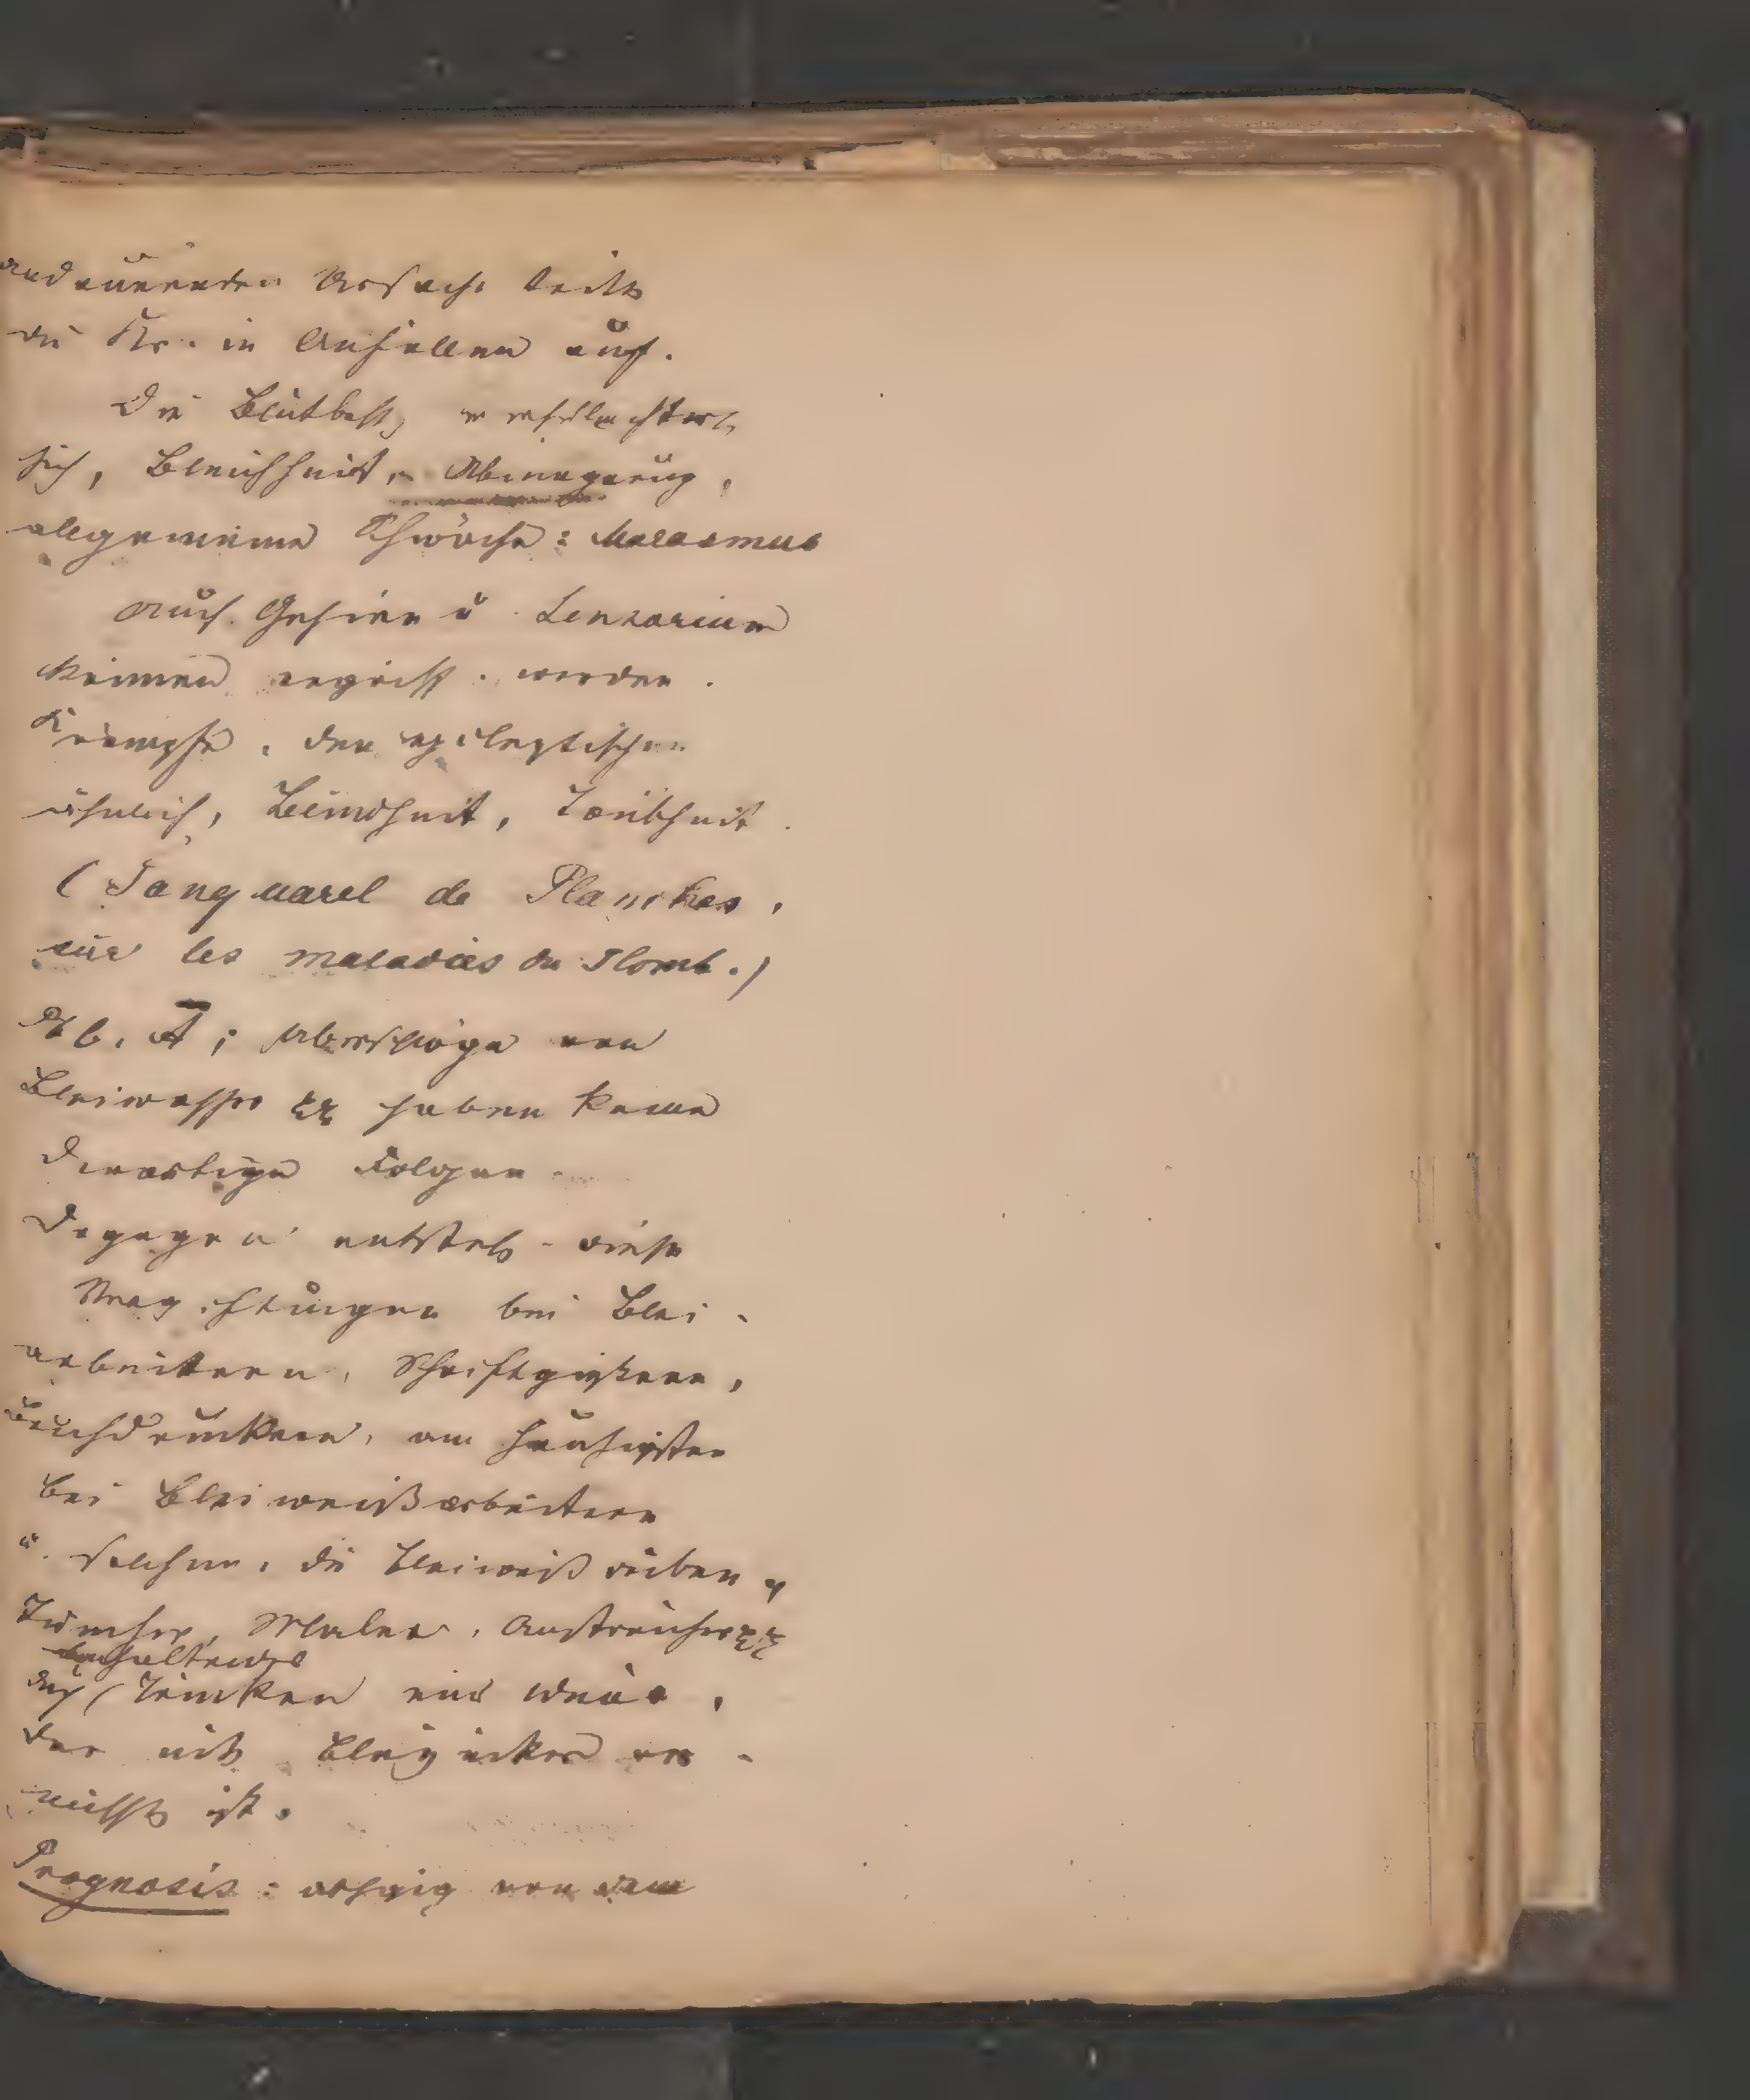 andauernden Ursache tritt
die Kr. in Anfällen auf.
Die Blutbesch. verschlechtert
sich, Bleichheit, Abmagerung,
allgemeine Schwäche: Marasmus
Auch Gehirn u. Sensorium
können ergriff. werden.
Krämpfe, den epileptischen
ähnlich, Blindheit, Taubheit.
(Tanquarel de Planches,
sur les maladies du Plomb.)
Überschläge von
Bleiwasser haben keine
derartige Folgen.
Dagegen entsteh. diese
Vergiftungen bei Blei-
arbeitern, Schriftgießern,
Buchdruckern, am häufigsten
bei Bleiweißarbeitern
u. solchen, die Bleiweiß reiben,
Tüncher, Maler, Anstreicher
anhaltendes
dch Trinken eines Weins,
der mit Bleizucker ver-
mischt ist.
Prognosis: abhgig von dem